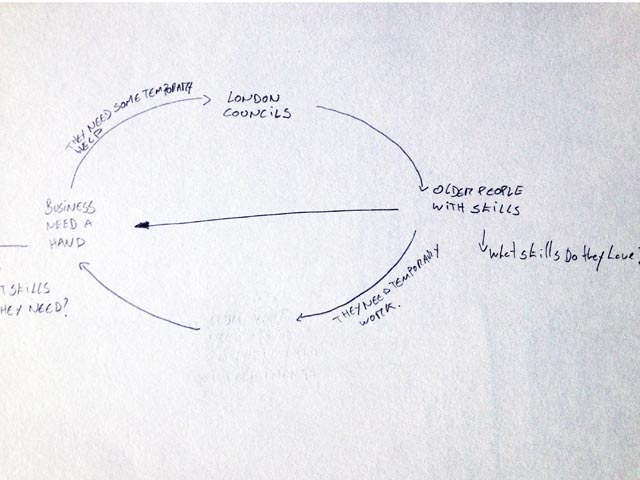 THEY NEED SOME TEMPORARY
HELP
LONDON
COUNCILS
OLDER PEOPLE
WITH SKILLS
What skills Do they have?
BUSINESS
NEED A
HAND
T SKILLS
HEY NEED?
THEY NEED TEMPORARY
WORK.